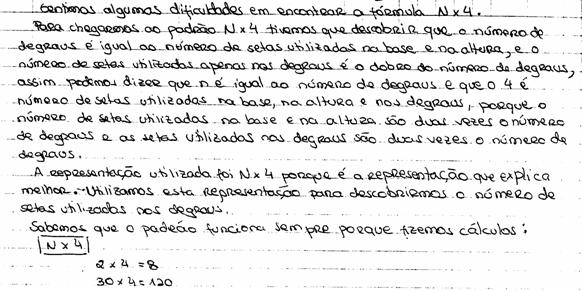 sentimos algumas dificuldades em encontrar a fórmula N x 4.
Para chegarmos ao padrão N x 4 tivemos que descobrir que o número de
degraus é igual ao número de setas utilizadas na base e na altura, e o
número de setas utilizadas apenas nos degraus é o dobro do número de degraus,
assim podemos dizer que n é igual ao número de degraus e que o 4 é
número de setas utilizadas na base, na altura e nos degraus, porque o
número de setas utilizadas na base e na altura são duas vezes o número
de degraus e as setas utilizadas nos degraus são duas vezes o número de
degraus.
A representação utilizada foi N x 4 porque é a representação que explica
melhor. Utilizamos esta representação para descobrirmos o número de
setas utilizadas nos degraus.
Sabemos que o padrão funciona sempre porque fizemos cálculos:
N x 4
2 x 4 = 8
30 x 4 = 120